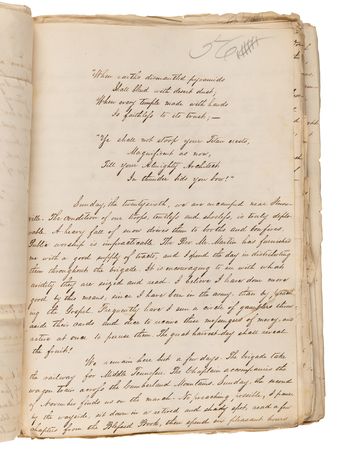 56
"When earth's dismantled pyramids
Shall blend with desert dust,
When every temple made with hands
Is faithless to its trust,—
"Ye shall not stoop your Titan crests,
Magnificent as now,
Till your Almighty Architect
In thunder bids you bow!"
Sunday, the twenty sixth, we are encamped near
ville. The condition of our troops, tentless and shoeless, is truly deplor-
able. A heavy fall of snow drives them to booths and bonfires.
Public worship is impracticable. The Rev. Mr. Martin has furnished
me with a good supply of tracts, and I spend the day in distributing
them throughout the brigade. It is encouraging to see with what
avidity they are seized and read. I believe I have done more
good by this means, since I have been in the army, than by preach-
ing the Gospel. Frequently have I seen a circle of gamesters throw
aside their cards and rise to receive these messengers of mercy, and
retire at once to peruse them. The great harvest-day shall reveal
the fruit!
We remain here but a few days. The brigade take
the railway for Middle Tennessee. The Chaplain accompanies the
wagon train across the Cumberland Mountains. Sunday, the second
of November finds us on the march. No preaching possible, I pause
by the wayside, sit down in a retired and shady spot, read a few
chapters from the Blessed Book, then spend an pleasant hours